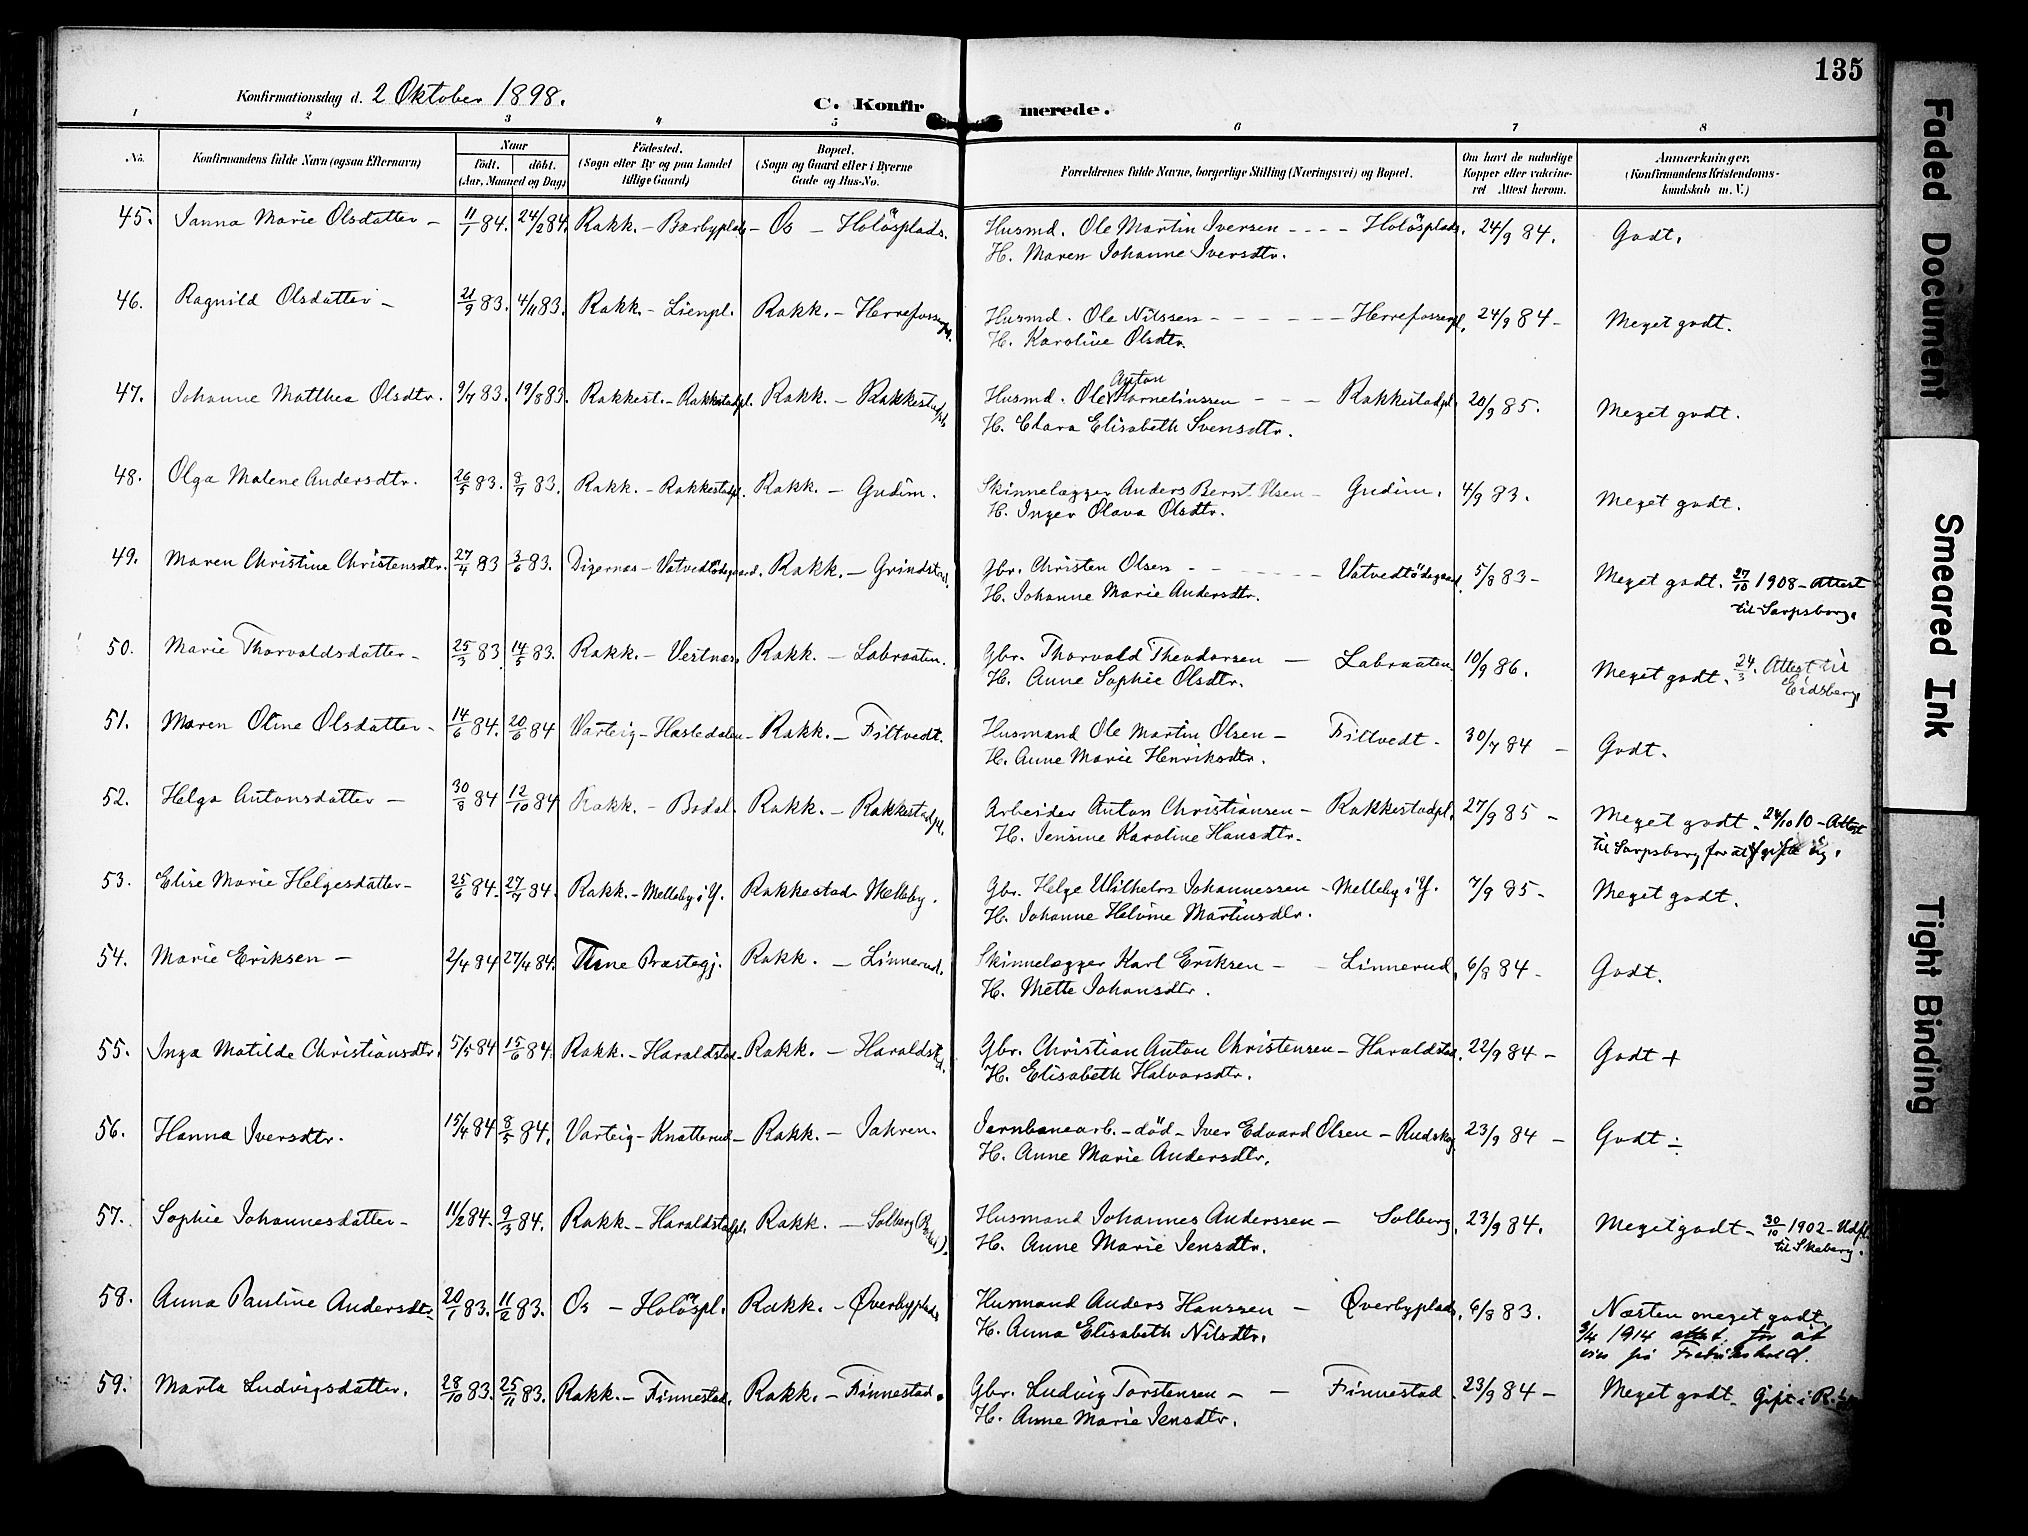 135
Konfirmationsdag d. 2 Oktober 1898.
C. Konfirmerede.
1 2 3 4 5 6 7 8
No. Konfirmandens fulde Navn (ogsaa Efternavn) Naar født. døbt. (Aar, Maaned og Dag) Fødested. (Sogn eller By og paa Landet tillige Gaard) Bopæl. (Sogn og Gaard eller i Byerne Gade og Hus-No. Forældrenes fulde Navne, borgerlige Stilling (Næringsvei) og Bopæl. Om havt de naturlige Kopper eller vakcineret. Attest herom. Anmærkninger. (Konfirmandens Kristendomskundskab m. V.)
45. Janna Marie Olsdatter – 11/1 84. 24/2 84. Rakk. – Bærbyplads – Os – Holøsplads. Husmd. Ole Martin Iversen – – – – Holøsplads. 24/9 84. Godt.
H. Maren Johanne Iversdtr.
46. Ragnild Olsdatter – 21/9 83. 4/11 83. Rakk. – Lienpl. Rakk. – Herrefossenpl. Husmd. Ole Nilssen – – – – – – Herrefossenpl. 24/9 84 – Meget godt.
H. Karoline Olsdtr.
47. Johanne Matthea Olsdtr. 9/7 83. 19/8 83. Rakkest. – Rakkestadpl. Rakk. – Rakkestadpl. Husmd. Ole Anton Kornelinssen – – – Rakkestadpl. 20/9 85. Meget godt.
H. Clara Elisabeth Svensdtr.
48. Olga Malene Andersdtr. 26/5 83. 8/7 83. Rakk. – Rakkestadpl. Rakk. – Gudim. Skinnelægger Anders Bernt Olsen – Gudim. 4/9 83. Meget godt.
H. Inger Olava Olsdtr.
49. Maren Christine Christensdtr. 27/4 83 3/6 83. Digernæs – Vatvedtødegaard. Rakk. – Grindstad. Gbr. Christen Olsen – – – – – – Vatvedtødegaard. 5/8 83 – Meget godt. 27/10 1908 – Attest
H. Johanne Marie Andersdtr. til Sarpsborg.
50. Marie Thorvaldsdatter – 25/3 83 14/5 83. Rakk. – Vestnæs. Rakk. – Labraaten. Gbr. Thorvald Theodorsen – Labraaten. 10/9 86. Meget godt. 24/3. Attest til
H. Anne Sophie Olsdtr. Eidsberg
51. Maren Oline Olsdatter – 14/6 84. 20/6 84 Varteig – Hasledalen – Rakk. – Filtvedt. Husmand Ole Martin Olsen – Filtvedt – 30/7 84 – Godt.
H. Anne Marie Henriksdtr.
52. Helga Antonsdatter – 30/8 84 12/10 84 Rakk. – Bodal. Rakk. – Rakkestadpl. Arbeider Anton Christiansen – Rakkestadpl. 27/9 85 – Meget godt. 24/10 10 – Attest
H. Jensine Karoline Hansdtr. til Sarpsborg for at gifte sig.
53. Elise Marie Helgesdatter – 25/6 84. 27/7 84. Rakk. – Melleby i Y. Rakkestad Melleby. Gbr. Helge Wilhelm Johannessen – Melleby i Y. 7/9 85 – Meget godt.
H. Johanne Helvine Martinsdtr.
54. Marie Eriksen – 2/4 84 27/4 84. Tune Præstegj. Rakk. – Linnerud. Skinnelægger Karl Eriksen – – Linnerud. 6/8 84 – Godt.
H. Mette Johansdtr.
55. Inga Matilde Christiansdtr. 5/5 84 15/6 84. Rakk. – Haraldstad – Rakk. – Haraldstad. Gbr. Christian Anton Christensen – Haraldstad. 22/9 84 – Godt +
H. Elisabeth Halvorsdtr.
56. Hanna Iversdtr. 15/4 84 8/5 84. Varteig – Knatterud – Rakk. – Jahren. Jernbanearb. – død – Iver Edvard Olsen – Rudskog. 23/9 84 – Godt ÷
H. Anne Marie Andersdtr.
57. Sophie Johannesdatter – 11/2 84. 9/3 84. Rakk. – Haraldstadpl. Rakk. – Solberg Husmand Johannes Anderssen – Solberg. 23/9 84. Meget godt – 30/10 1902 – Udfl.
H. Anne Marie Jensdtr. til Skeberg.
58. Anna Pauline Andersdtr. 20/1 83. 11/2 83. Os – Holøspl. Rakk. – Øverbyplads Husmand Anders Hanssen – Øverbyplads. 6/8 83. Næsten meget godt
H. Anna Elisabeth Nilsdtr. 3/4 1914 attest. for at
vies på Fredrikshald.
59. Marta Ludvigsdatter. 28/10 83. 25/11 83. Rakk. – Finnestad. Rakk. – Finnestad. Gbr. Ludvig Torstensen – – Finnestad. 23/9 84 – Meget godt. Gift i R.
H. Anne Marie Jensdtr.
Faded Document
Smeared Ink
Tight Binding